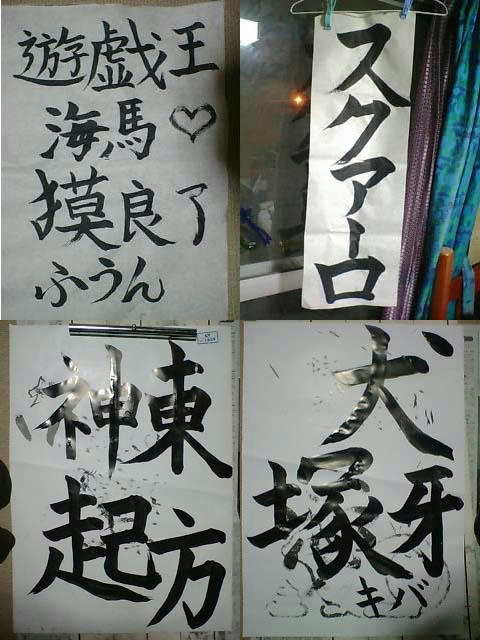 遊戯王
海馬♡
獏良了
ふうん
スクアーロ
東方
神起
犬
塚牙
キバ